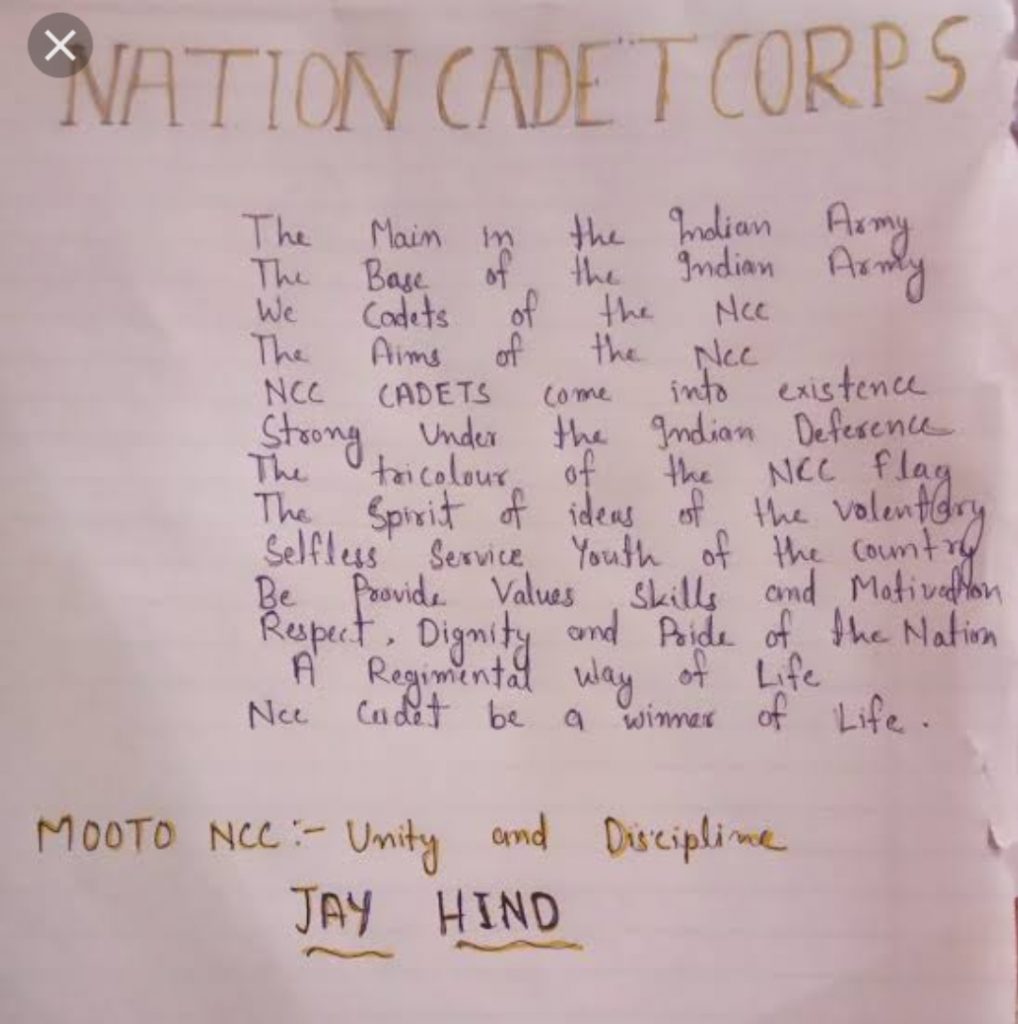 NATION CADET CORPS
The Main in the Indian Army
The Base of the Indian Army
We Cadets of the Ncc
The Aims of the Ncc
NCC CADETS come into existence
Strong Under the Indian Deference
The tricolour of the NCC flag
The Spirit of ideas of the volentary
Selfless Service Youth of the country
Be Provide Values Skills and Motivation
Respect, Dignity and Pride of the Nation
A Regimental Way of Life
Ncc Cadet be a winner of Life.
MOOTO NCC :- Unity and Discipline
JAY HIND